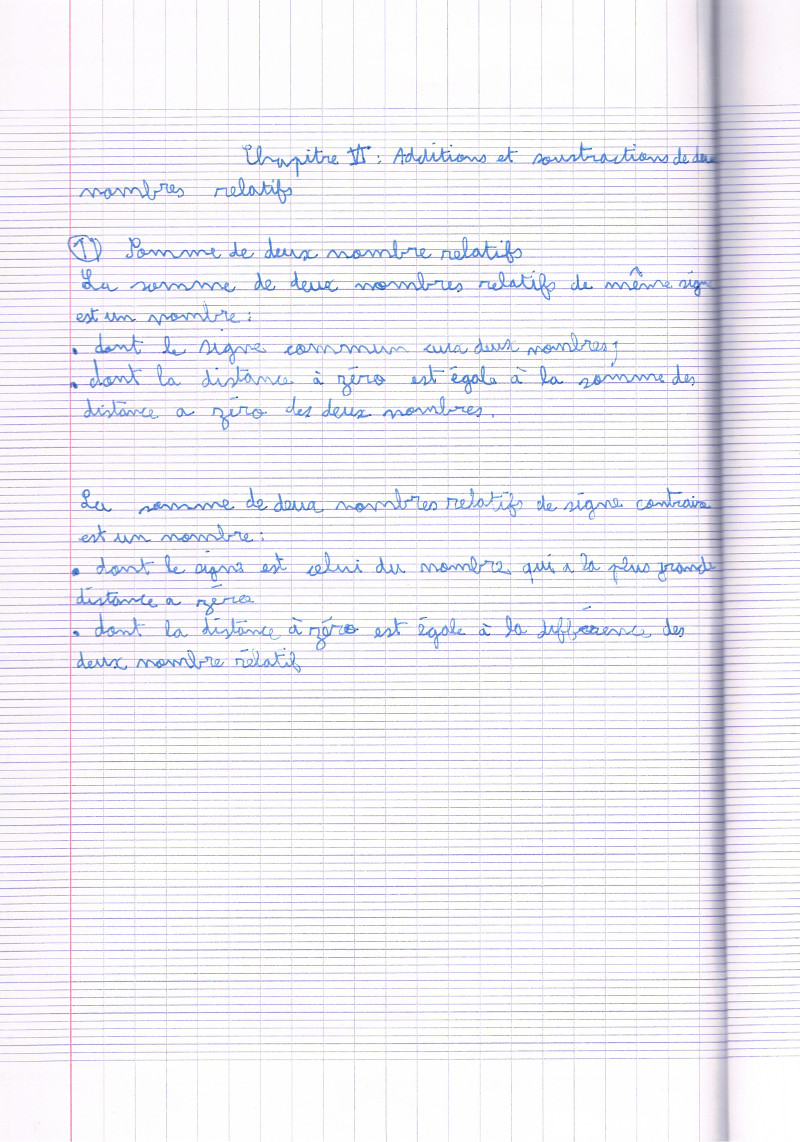 Chapitre VI : Additions et soustractions de deux
nombres relatifs
1) Somme de deux nombre relatifs
La somme de deux nombres relatifs de même signe
est un nombre :
• dont le signe commun aux deux nombres ;
• dont la distance à zéro est égale à la somme des
distance a zéro des deux nombres.
La somme de deux nombres relatifs de signe contraire
est un nombre :
• dont le signe est celui du nombre qui a la plus grande
distance a zéros
• dont la distance à zéro est égale à la différence des
deux nombre rélatif